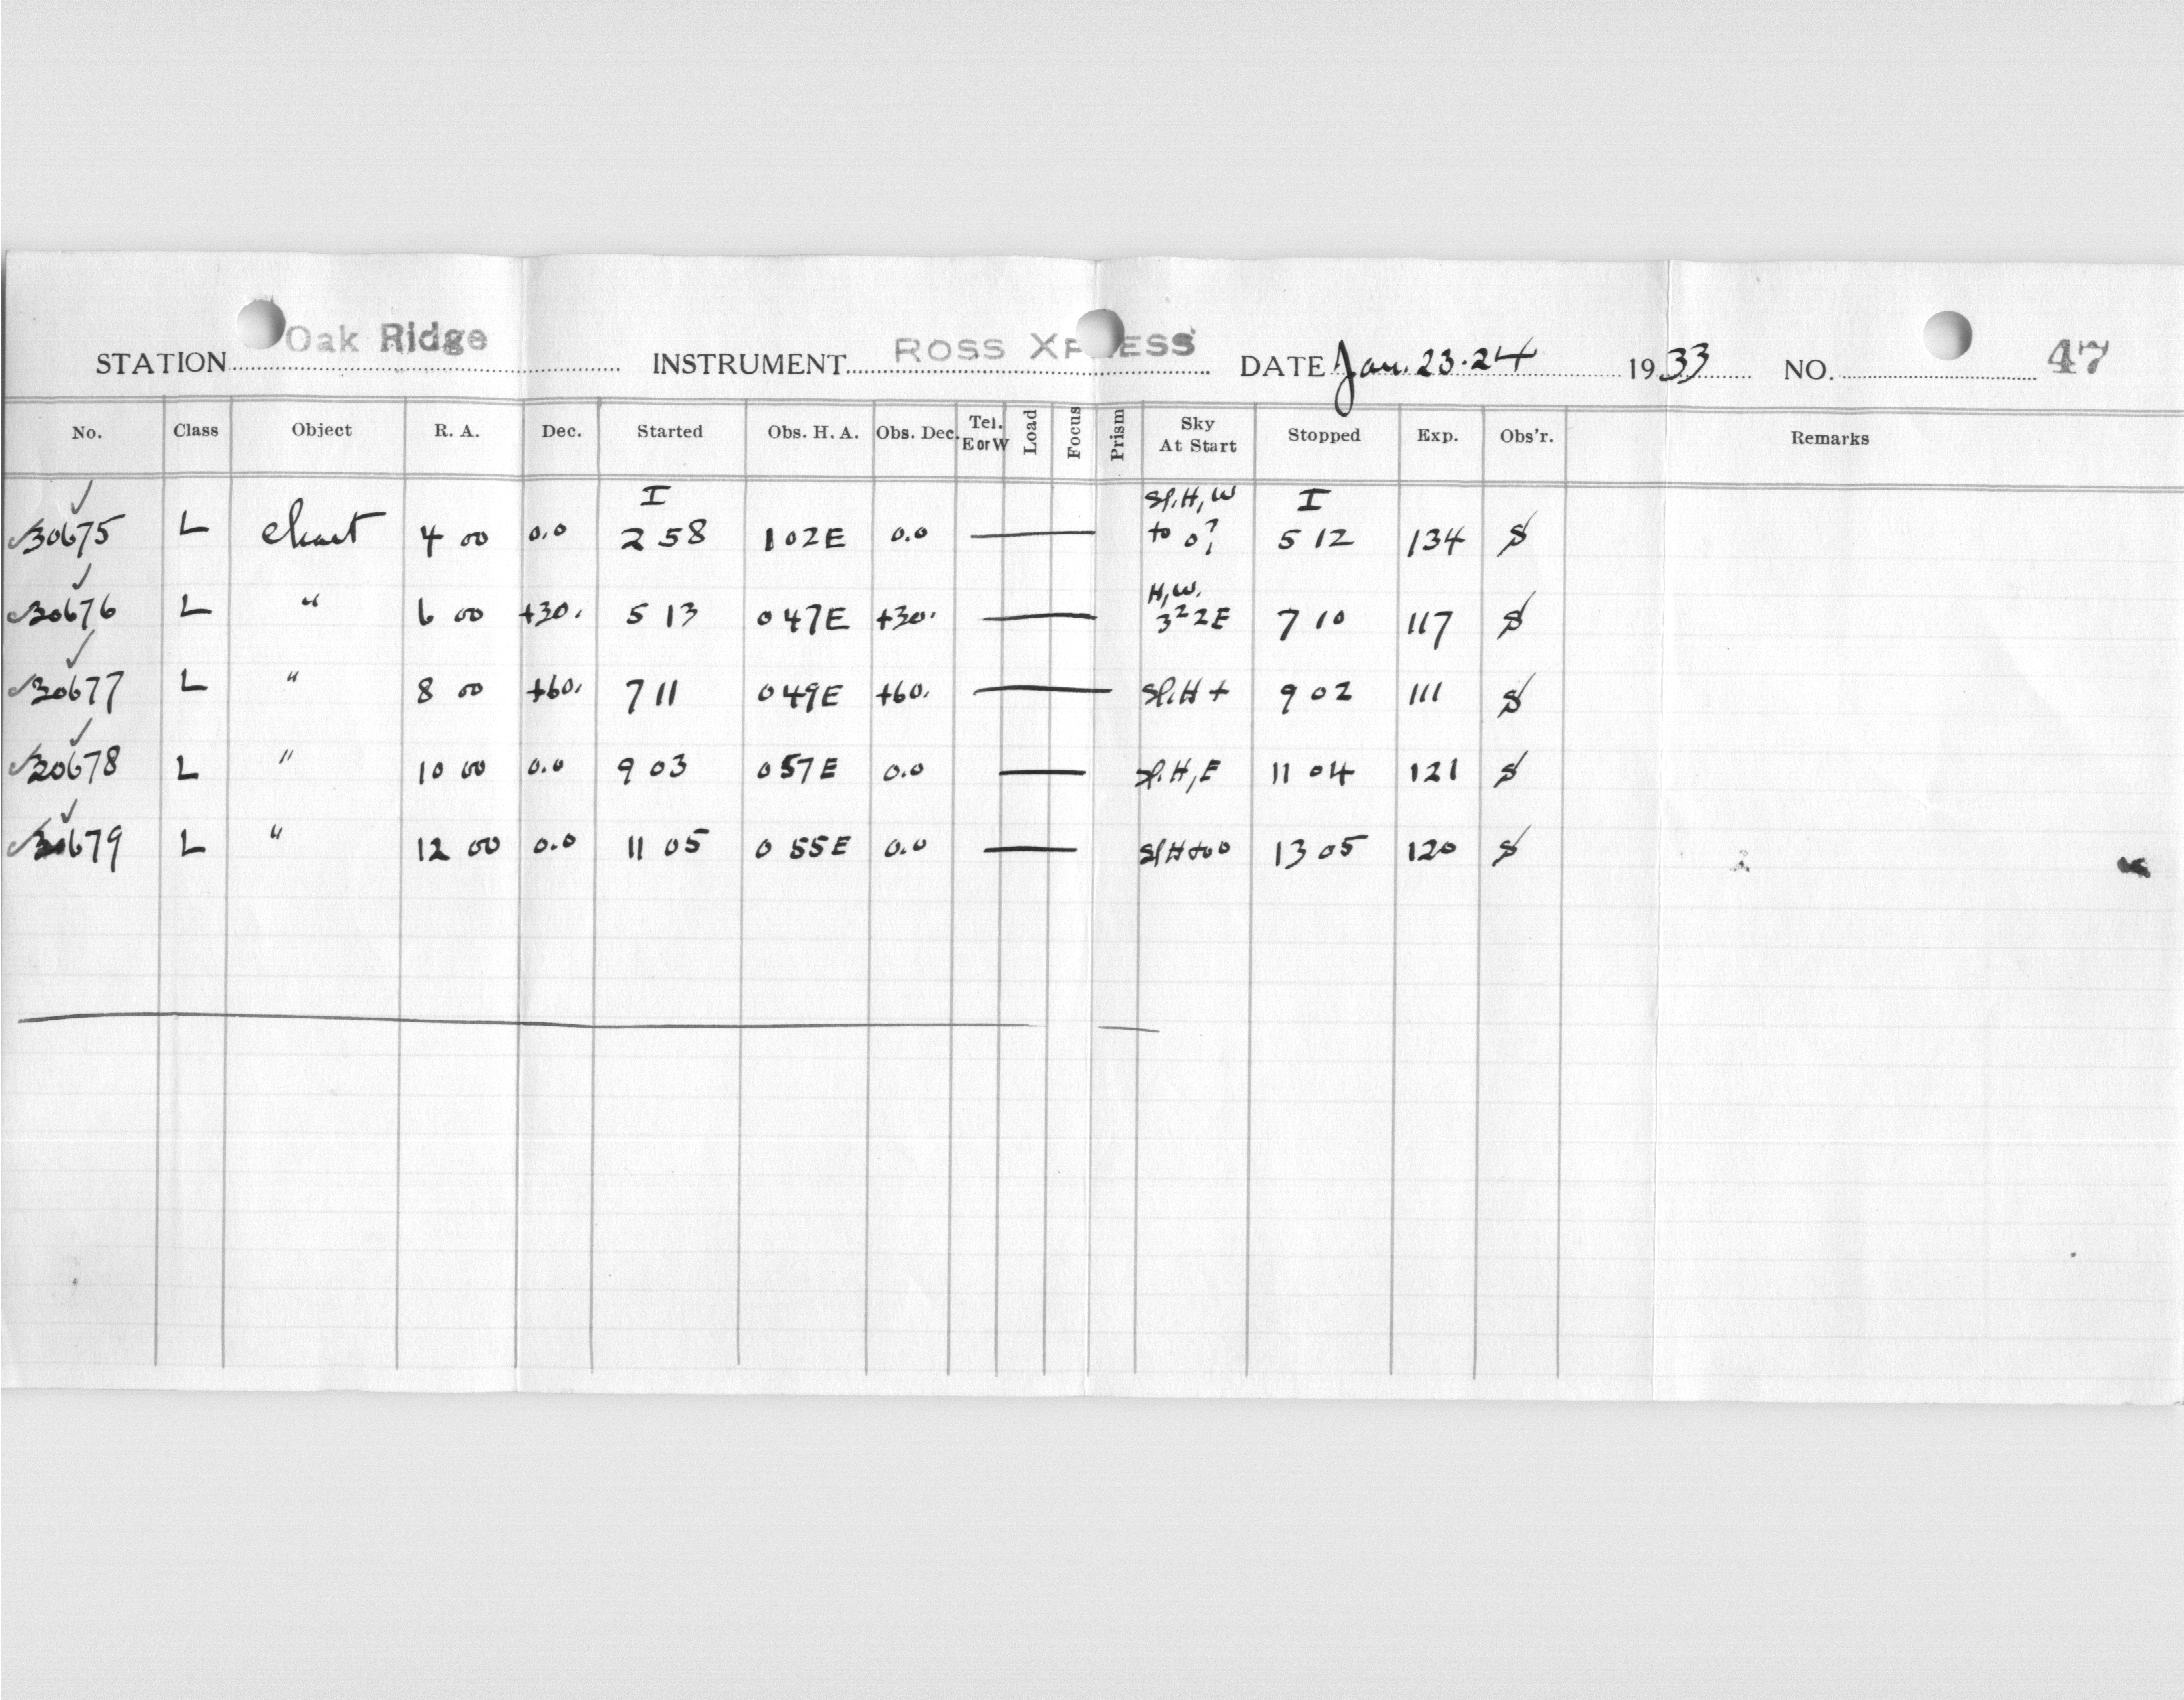 STATION Oak Ridge INSTRUMENT ROSS XP ESS DATE Jan. 23-24 1933 NO. 47
No. Class Object R. A. Dec. Started Obs. H. A. Obs. Dec. Tel. E or W Load Focus Prism Sky At Start Stopped Exp. Obs'r. Remarks
I sp.H, W I
✓30675 L chart 4 00 0.0 2 58 1 02E 0.0 — to 0? 5 12 134 S
H, W.
✓30676 L " 6 00 +30. 5 13 0 47E +30. — 3²2E 7 10 117 S
✓30677 L " 8 00 +60. 7 11 0 49E +60. — sp.H + 9 02 111 S
✓30678 L " 10 00 0.0 9 03 0 57E 0.0 — sp.H, E 11 04 121 S
✓30679 L " 12 00 0.0 11 05 0 55E 0.0 — spH to 0 13 05 120 S